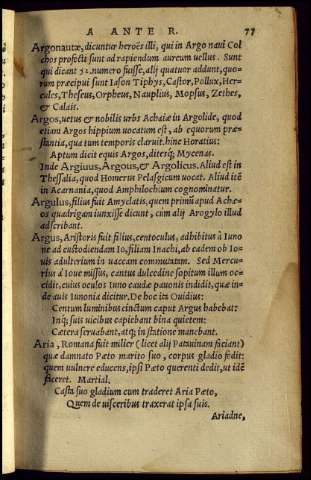 A ANTE R. 77
Argonautæ, dicuntur heroës illi, qui in Argo naui Col
chos profecti sunt ad rapiendum aureum uellus. Sunt
qui dicant 52. numero fuisse, alij quatuor addunt, quo-
rum præcipui sunt Iason Tiphys, Castor, Pollux, Her-
cules, Theseus, Orpheus, Nauplius, Mopsus, Zethes,
& Calais.
Argos, uetus & nobilis urbs Achaiæ in Argolide, quod
etiam Argos hippium uocatum est, ab equorum præ-
stantia, qua tum temporis claruit. hinc Horatius:
Aptum dicit equis Argos, diteisq; Mycenas.
Inde Argiuus, Argous, & Argolicus. Aliud est in
Thessalia, quod Homerus Pelasgicum uocat. Aliud itē
in Acarnania, quod Amphilochum cognominatur.
Argulus, filius fuit Amyclatis, quem primū apud Achæ-
os quadrigam iunxisse dicunt, cum alij Arogylo illud
adscribant.
Argus, Aristoris fuit filius, centoculus, adhibitus à Iuno
ne ad custodiendam Io, filiam Inachi, ab eadem ob Io-
uis adulterium in uaccam commutatam. Sed Mercu-
rius à Ioue missus, cantus dulcedine sopitum illum oc-
cidit, cuius oculos Iuno caudæ pauonis indidit, quæ in-
de auis Iunonia dicitur. De hoc ita Ouidius:
Centum luminibus cinctum caput Argus habebat:
Inq; suis uicibus capiebant bina quietem:
Cætera seruabant, atq; in statione manebant.
Aria, Romana fuit mulier (licet alij Patauinam faciant)
quæ damnato Pæto marito suo, corpus gladio fodit:
quem uulnere educens, ipsi Pæto querenti dedit, ut idē
faceret. Martial.
Casta suo gladium cum traderet Aria Pæto,
Quem de uisceribus traxerat ipsa suis.
Ariadne,